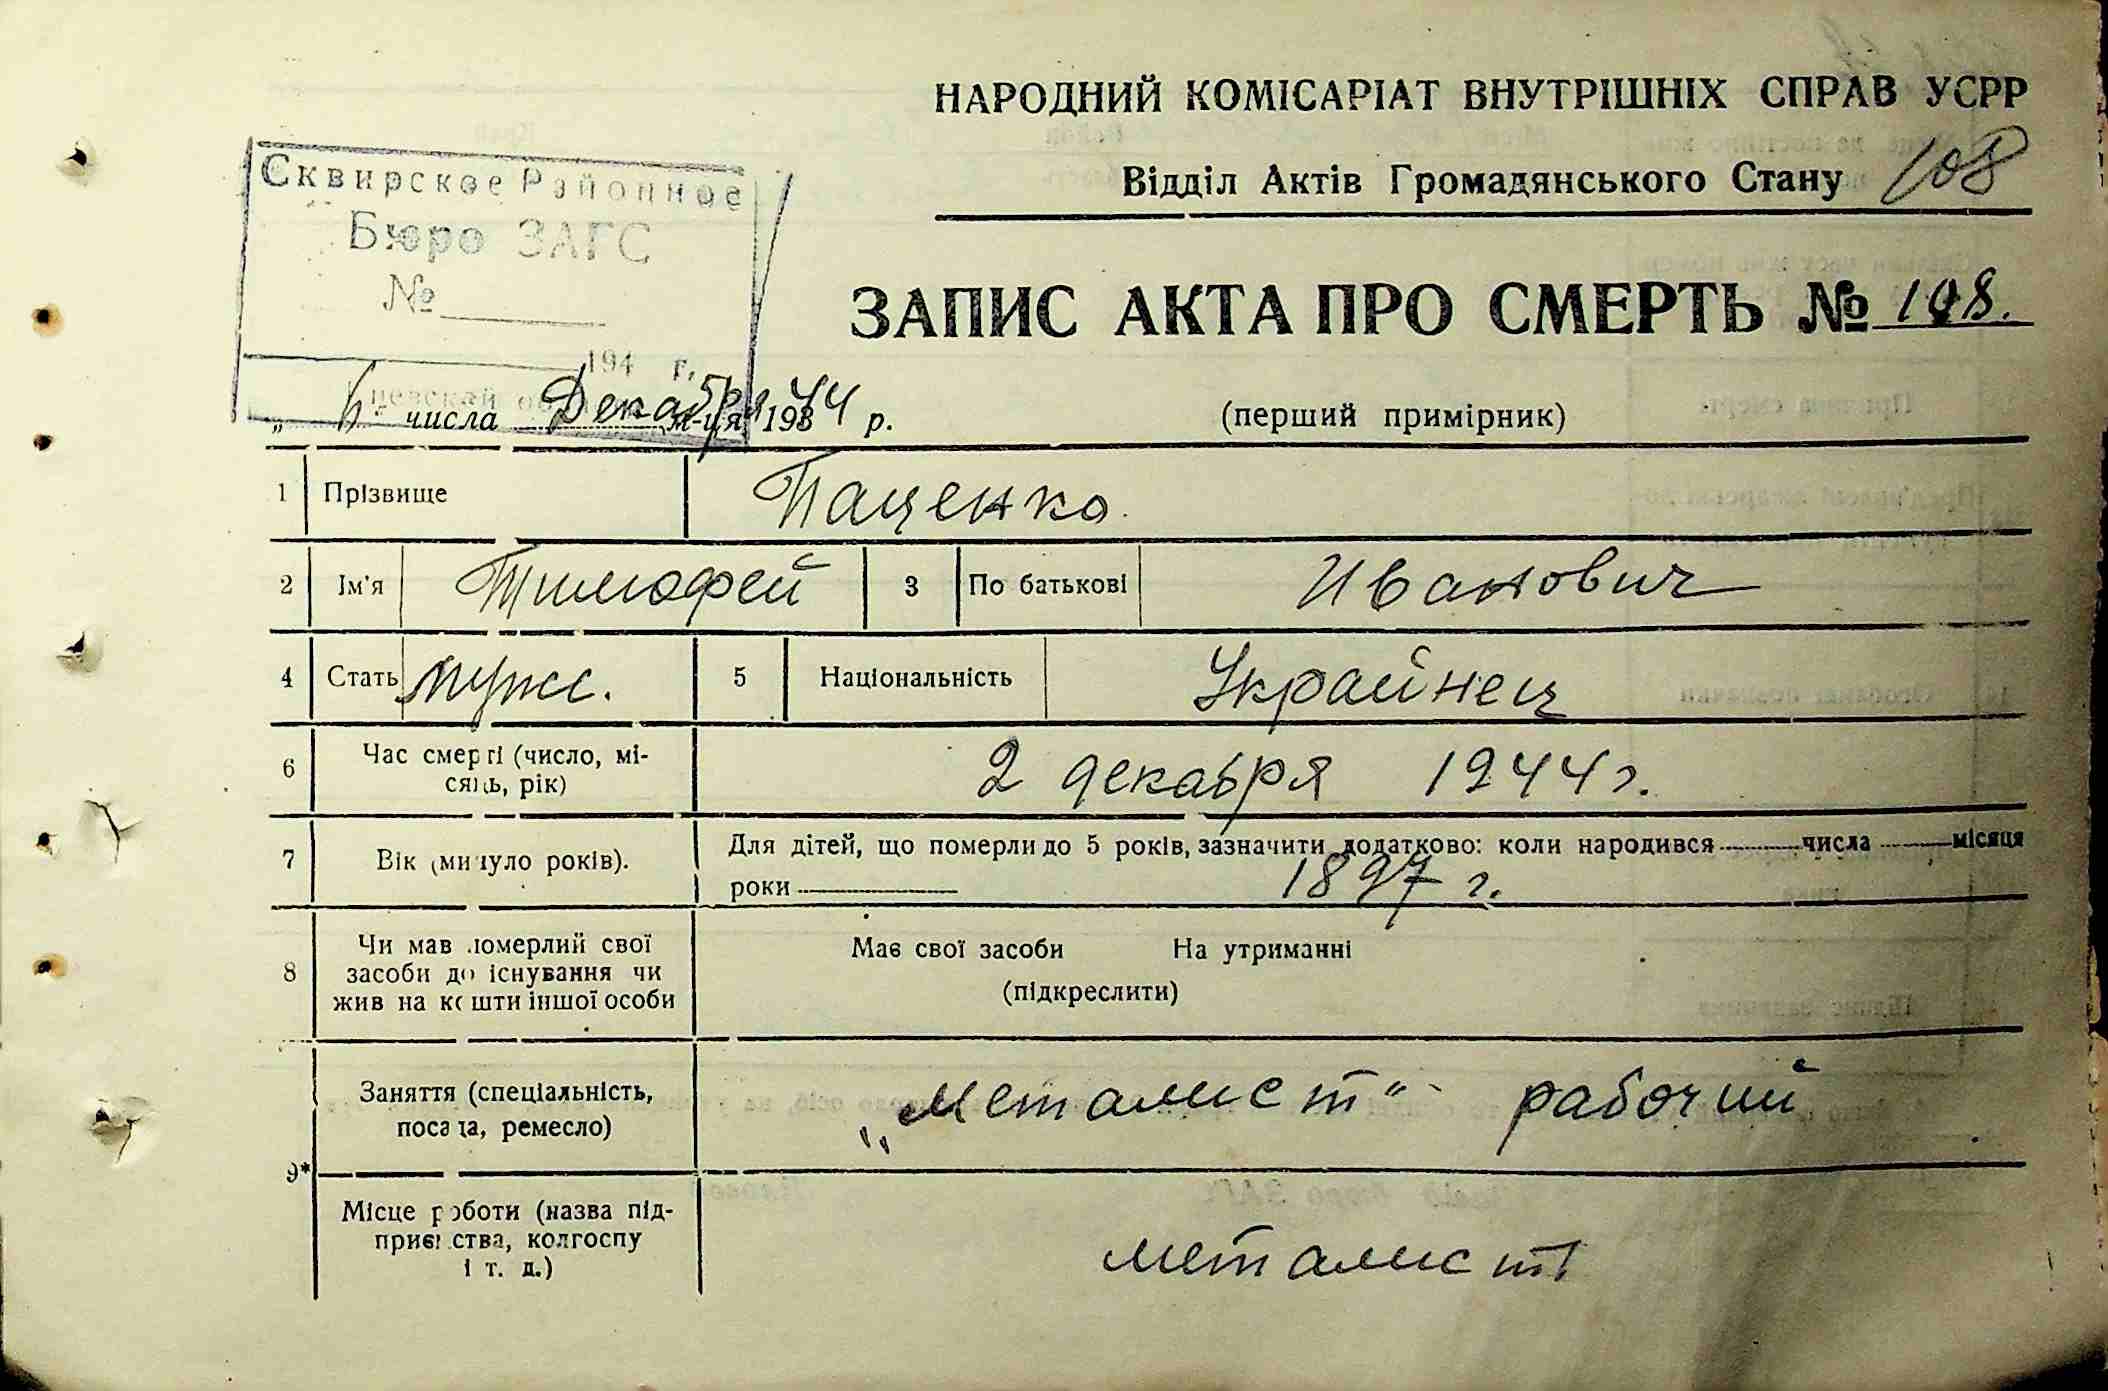 НАРОДНИЙ КОМІСАРІАТ ВНУТРІШНІХ СПРАВ УСРР
Відділ Актів Громадянського Стану 108
Сквирское Районное
Бюро ЗАГС
№
194 г.
ЗАПИС АКТА ПРО СМЕРТЬ № 108.
„6" числа Декабря м-ця 1944 р.
(перший примірник)
1 Прізвище Паценко
2 Ім'я Тимофей 3 По батькові Иванович
4 Стать мужс. 5 Національність Украйнец
6 Час смерті (число, мі-
сяць, рік) 2 декабря 1944 г.
7 Вік (минуло років). Для дітей, що померли до 5 років, зазначити додатково: коли народився числа місяця
роки 1897 г.
8 Чи мав померлий свої
засоби до існування чи
жив на кошти іншої особи
Має свої засоби На утриманні
(підкреслити)
9*
Заняття (спеціальність,
посада, ремесло) „Металист" рабочий
Місце роботи (назва під-
приємства, колгоспу
і т. д.) металист